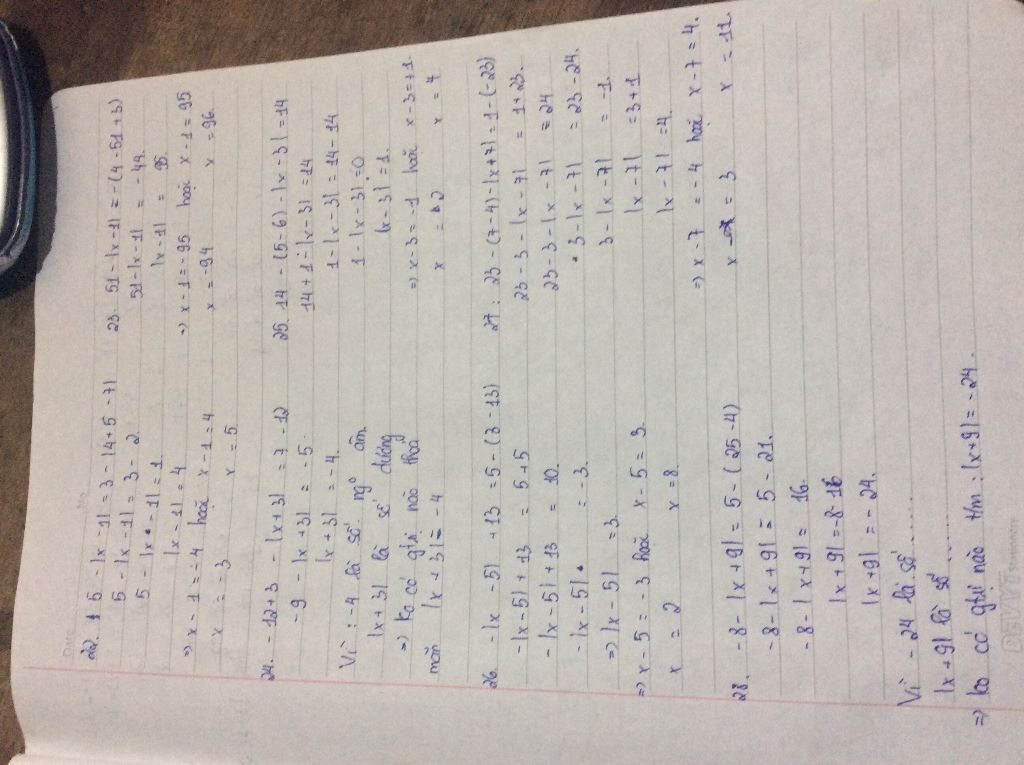 Date No
22. 5 - |x - 1| = 3 - |4 + 5 - 7|
5 - |x - 1| = 3 - 2
5 - |x - 1| = 1.
|x - 1| = 4
=> x - 1 = -4 hoặc x - 1 = 4
x = -3 x = 5
23. 51 - |x - 1| = -(4 - 51 + 3)
51 - |x - 1| = - 44.
|x - 1| = 95.
=> x - 1 = -95 hoặc x - 1 = 95
x = -94 x = 96.
24. - 12 + 3 - |x + 3| = 7 - 12
- 9 - |x + 3| = - 5.
|x + 3| = - 4.
Vì : -4 là số ngº âm
|x + 3| là số dương
=> Ko có gtri nào thoả
mãn |x + 3| = - 4
25. 14 - (5 - 6) - |x - 3| = 14
14 + 1 - |x - 3| = 14
1 - |x - 3| = 14 - 14
1 - |x - 3| = 0
|x - 3| = 1.
=> x - 3 = -1 hoặc x - 3 = +1.
x = 2 x = 4
26. - |x - 5| + 13 = 5 - (3 - 13)
- |x - 5| + 13 = 5 + 5
- |x - 5| + 13 = 10.
- |x - 5| = - 3.
=> |x - 5| = 3.
=> x - 5 = - 3 hoặc x - 5 = 3.
x = 2 x = 8.
27 : 23 - (7 - 4) - |x + 7| = 1 - (-23)
23 - 3 - |x - 7| = 1 + 23.
23 - 3 - |x - 7| = 24
3 - |x - 7| = 23 - 24.
3 - |x - 7| = -1.
|x - 7| = 3 + 1
|x - 7| = 4.
=> x - 7 = - 4 hoặc x - 7 = 4.
x = 3 x = 11.
28. - 8 - |x + 9| = 5 - (25 - 4)
- 8 - |x + 9| = 5 - 21.
- 8 - |x + 9| = 16.
|x + 9| = -8 - 16
|x + 9| = - 24.
Vì - 24 là số ........
|x + 9| là số ..........
=> ko có gtri nào t/m : |x + 9| = - 24.